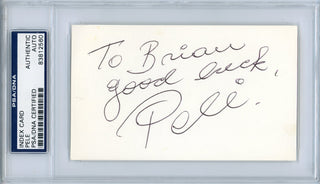 PSA/DNA
INDEX CARD
PELE
PSA/DNA CERTIFIED
AUTHENTIC
AUTO
83812580
To Brian
good luck,
Pelé.